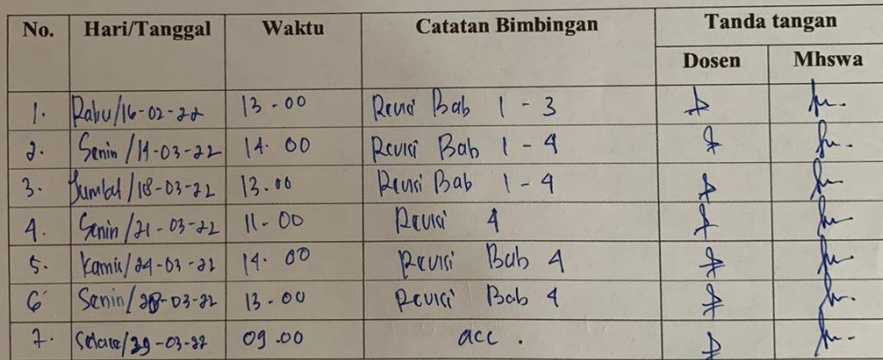 No. Hari/Tanggal Waktu Catatan Bimbingan Tanda tangan
Dosen Mhswa
1. Rabu/16-02-22 13-00 Revisi Bab 1-3
2. Senin/14-03-22 14.00 Revisi Bab 1-4
3. Jumbat/18-03-22 13.00 Revisi Bab 1-4
4. Senin/21-03-22 11-00 Revisi 4
5. Kamis/24-03-22 14.00 Revisi Bab 4
6 Senin/28-03-22 13-00 Revisi Bab 4
7. Selasa/29-03-22 09.00 acc.